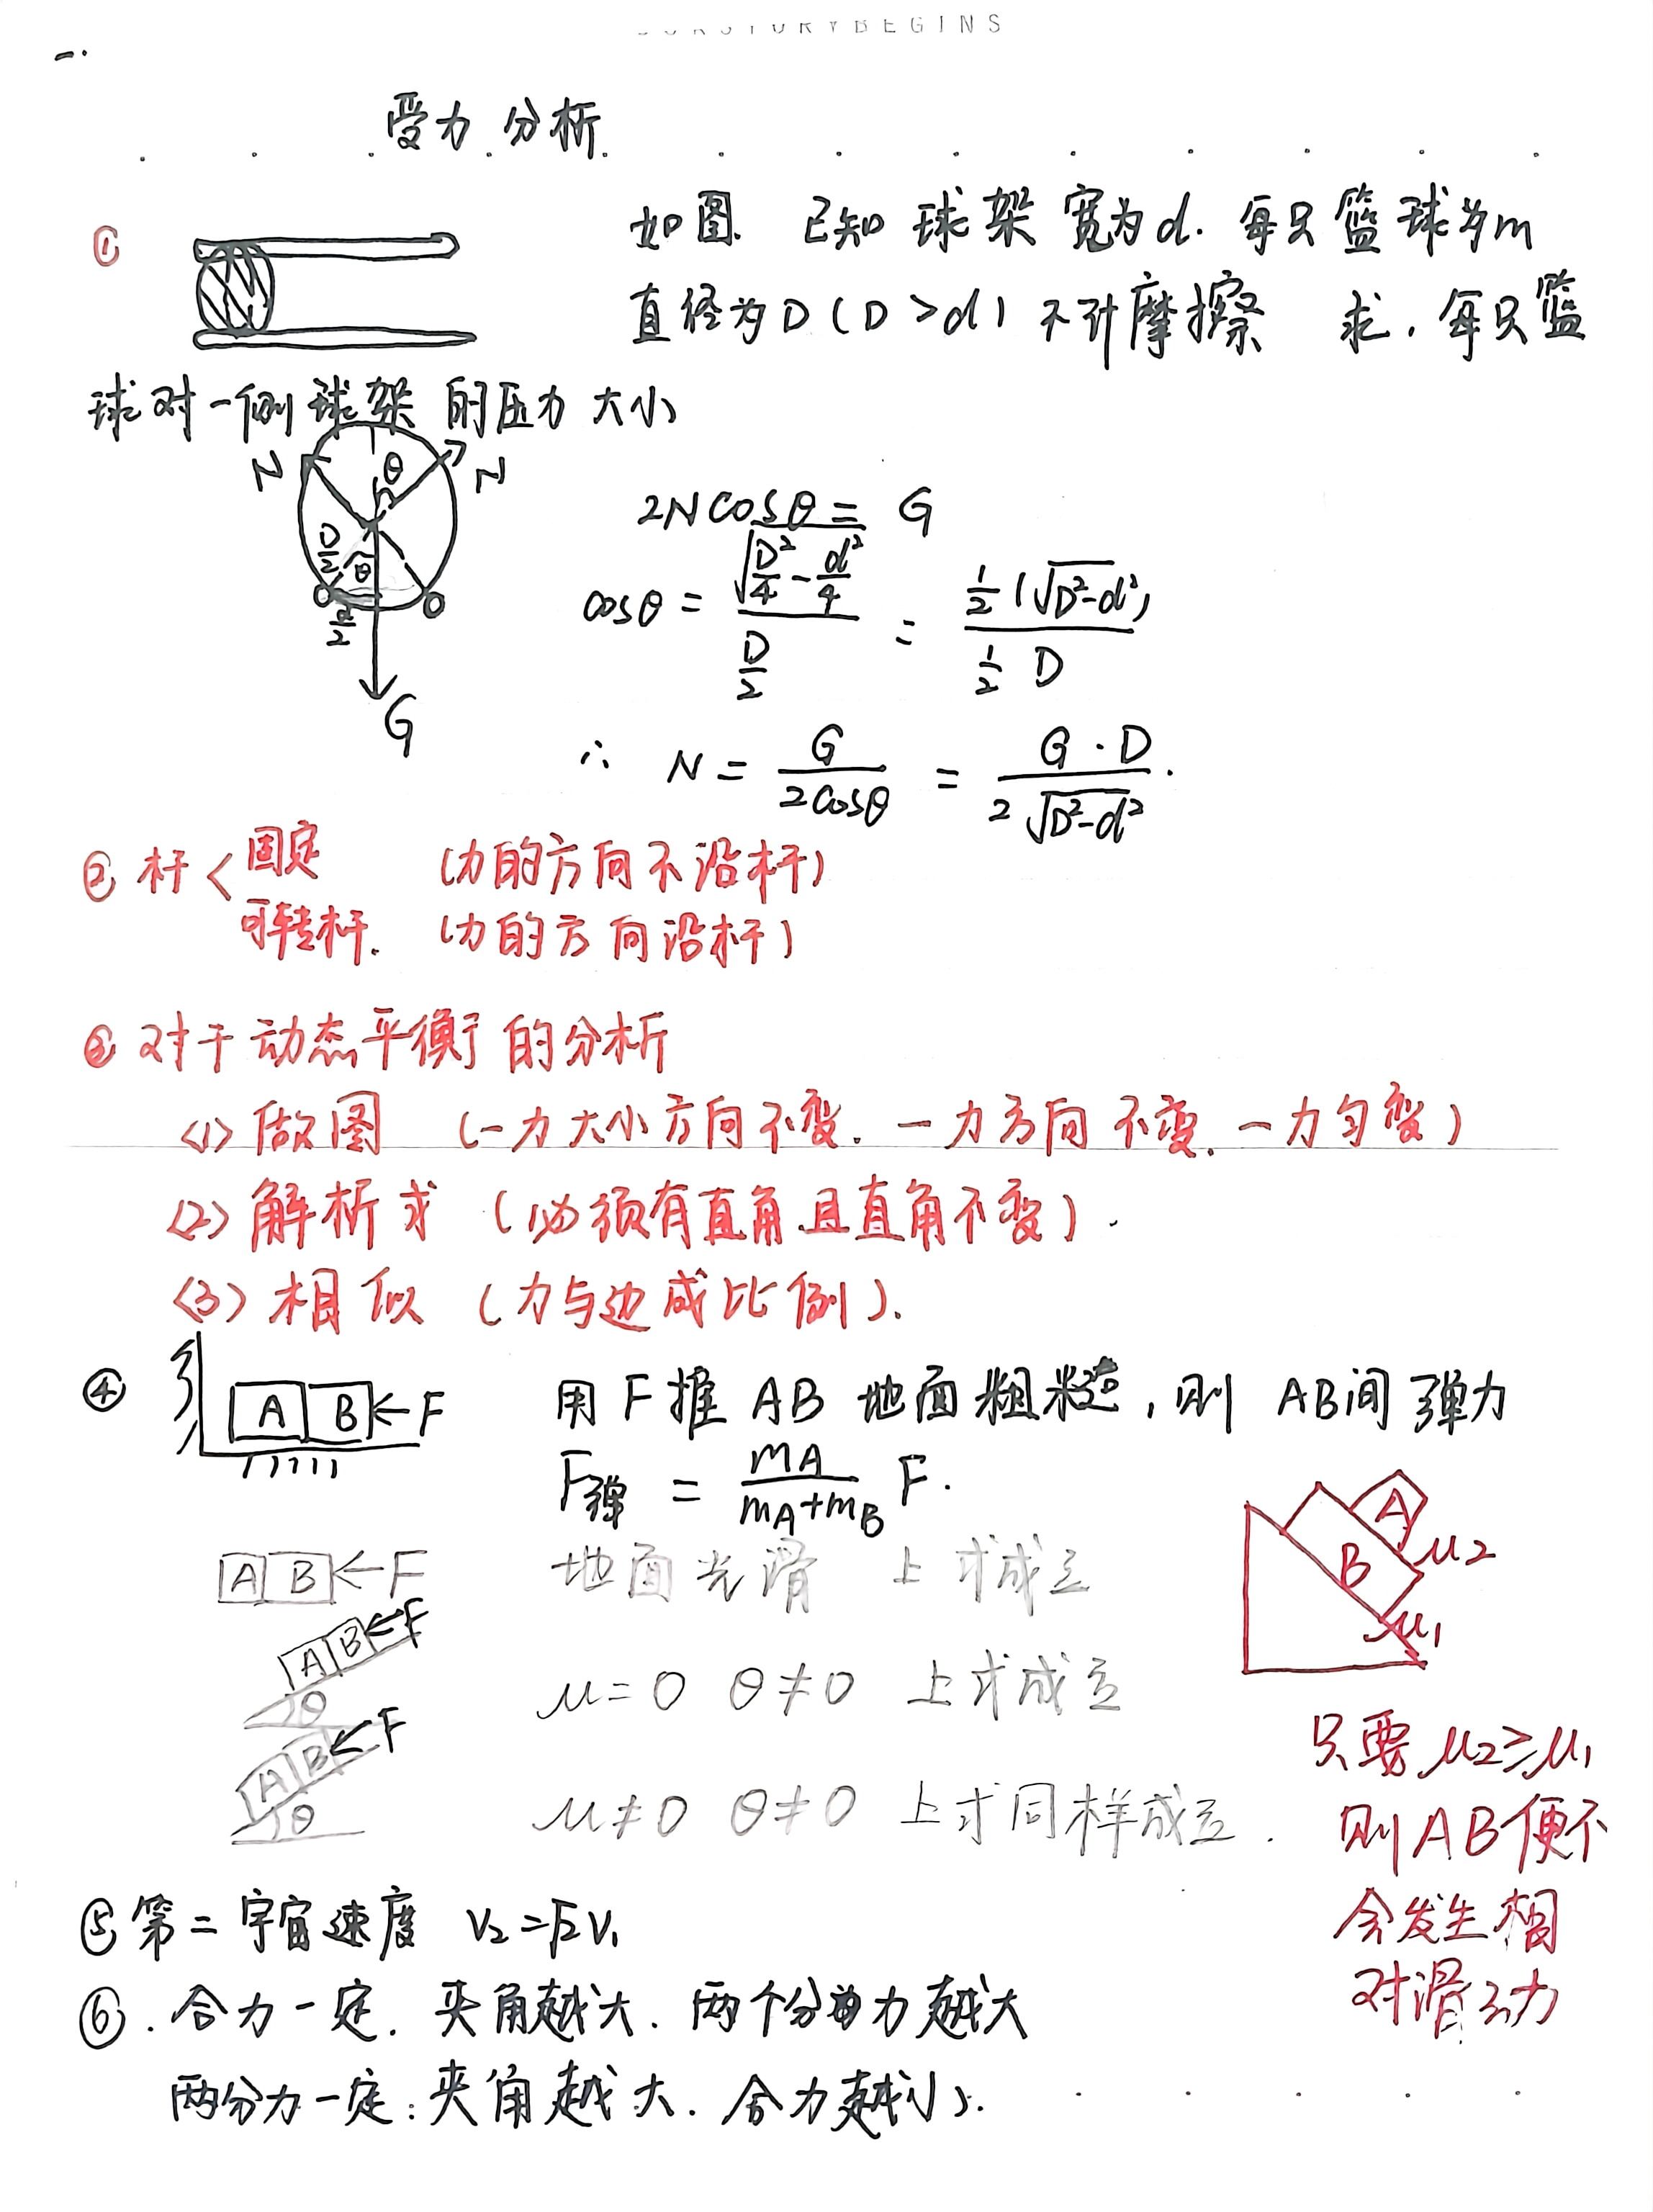 BEGINS
一.
受力分析
① 如图. 已知球架宽为d. 每只篮球为m
直径为D(D>d) 不计摩擦 求. 每只篮
球对一侧球架的压力大小
N θ N
D/2 θ
d/2
G
2Ncosθ = G
cosθ = √(D²/4 - d²/4) / (D/2) = ½(√D²-d²) / ½ D
∴ N = G/2cosθ = G·D / 2√D²-d² .
② 杆< 固定 (力的方向不沿杆)
可转杆. (力的方向沿杆)
③ 对于动态平衡的分析
<1> 做图 (一力大小方向不变. 一力方向不变. 一力匀变)
<2> 解析求 (必须有直角且直角不变).
<3> 相似 (力与边成比例).
④ A B ←F 用F推AB地面粗糙, 则AB间弹力
F弹 = mA/(mA+mB) F.
A B ←F 地面光滑 上求成立
A B ←F
θ μ=0 θ≠0 上求成立
A B ←F
θ μ≠0 θ≠0 上求同样成立.
A
B μ2
μ1
只要μ2≥μ1
则AB便不
会发生相
对滑动
⑤ 第二宇宙速度 V2=√2V1
⑥. 合力一定. 夹角越大. 两个分力越大
两分力一定: 夹角越大. 合力越小.